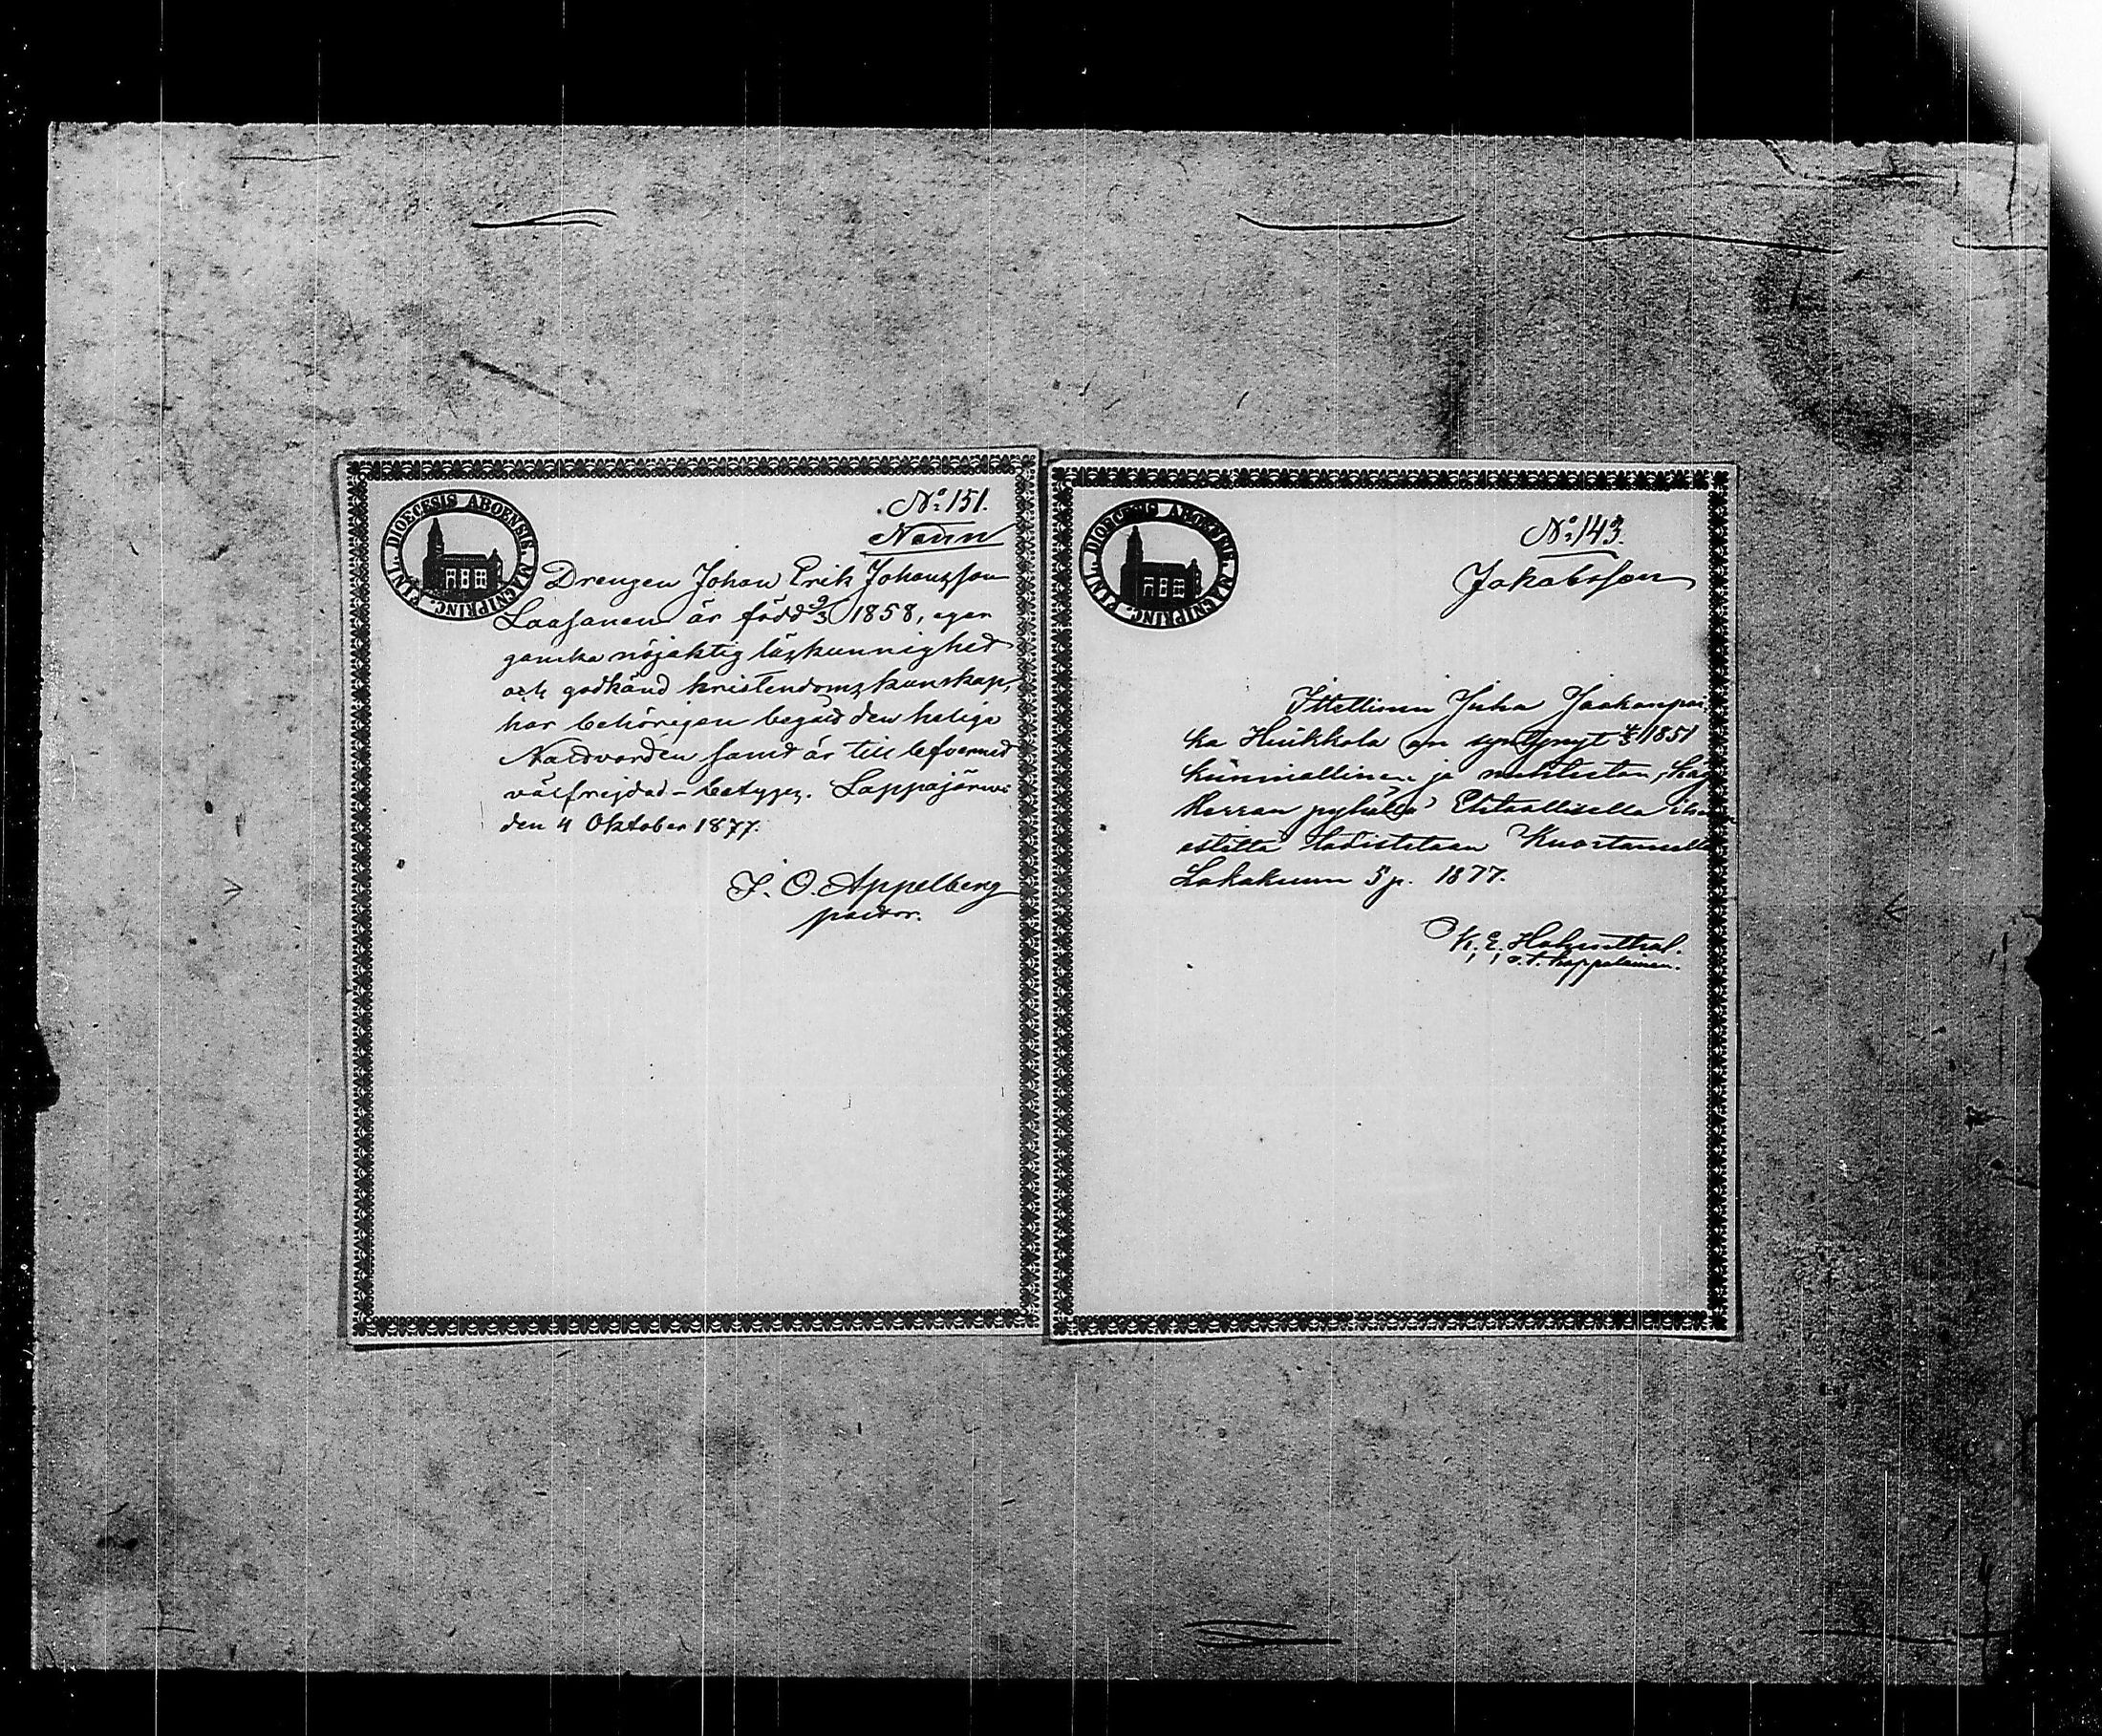 DIOECESIS ABOENSIS. MAGNIPRINC. FINL.
No: 151.
Drengen Johan Erik Johansson
Laasanen är född 9/3 1858, eger
ganska nöjaktig läskunnighet
och godkänd kristendomskunskap,
har behörigen begått den heliga
Nattvarden samt är till lefvernet
välfrejdad – betygas. Lappajärvi
den 4 Oktober 1877.
J. O. Appelberg
pastor.
DIOECESIS ABOENSIS. MAGNIPRINC. FINL.
No: 143.
Jakobsson
Itellinen Juha Jaakonpoi
ka Huikkola on syntynyt 4/3 1851
kunniallinen ja
Herran pyhällä Ehtoollisella
todistetaan Kuortaneella
Lokakuun 5 p. 1877.
K. E.
v. t. kappalainen.